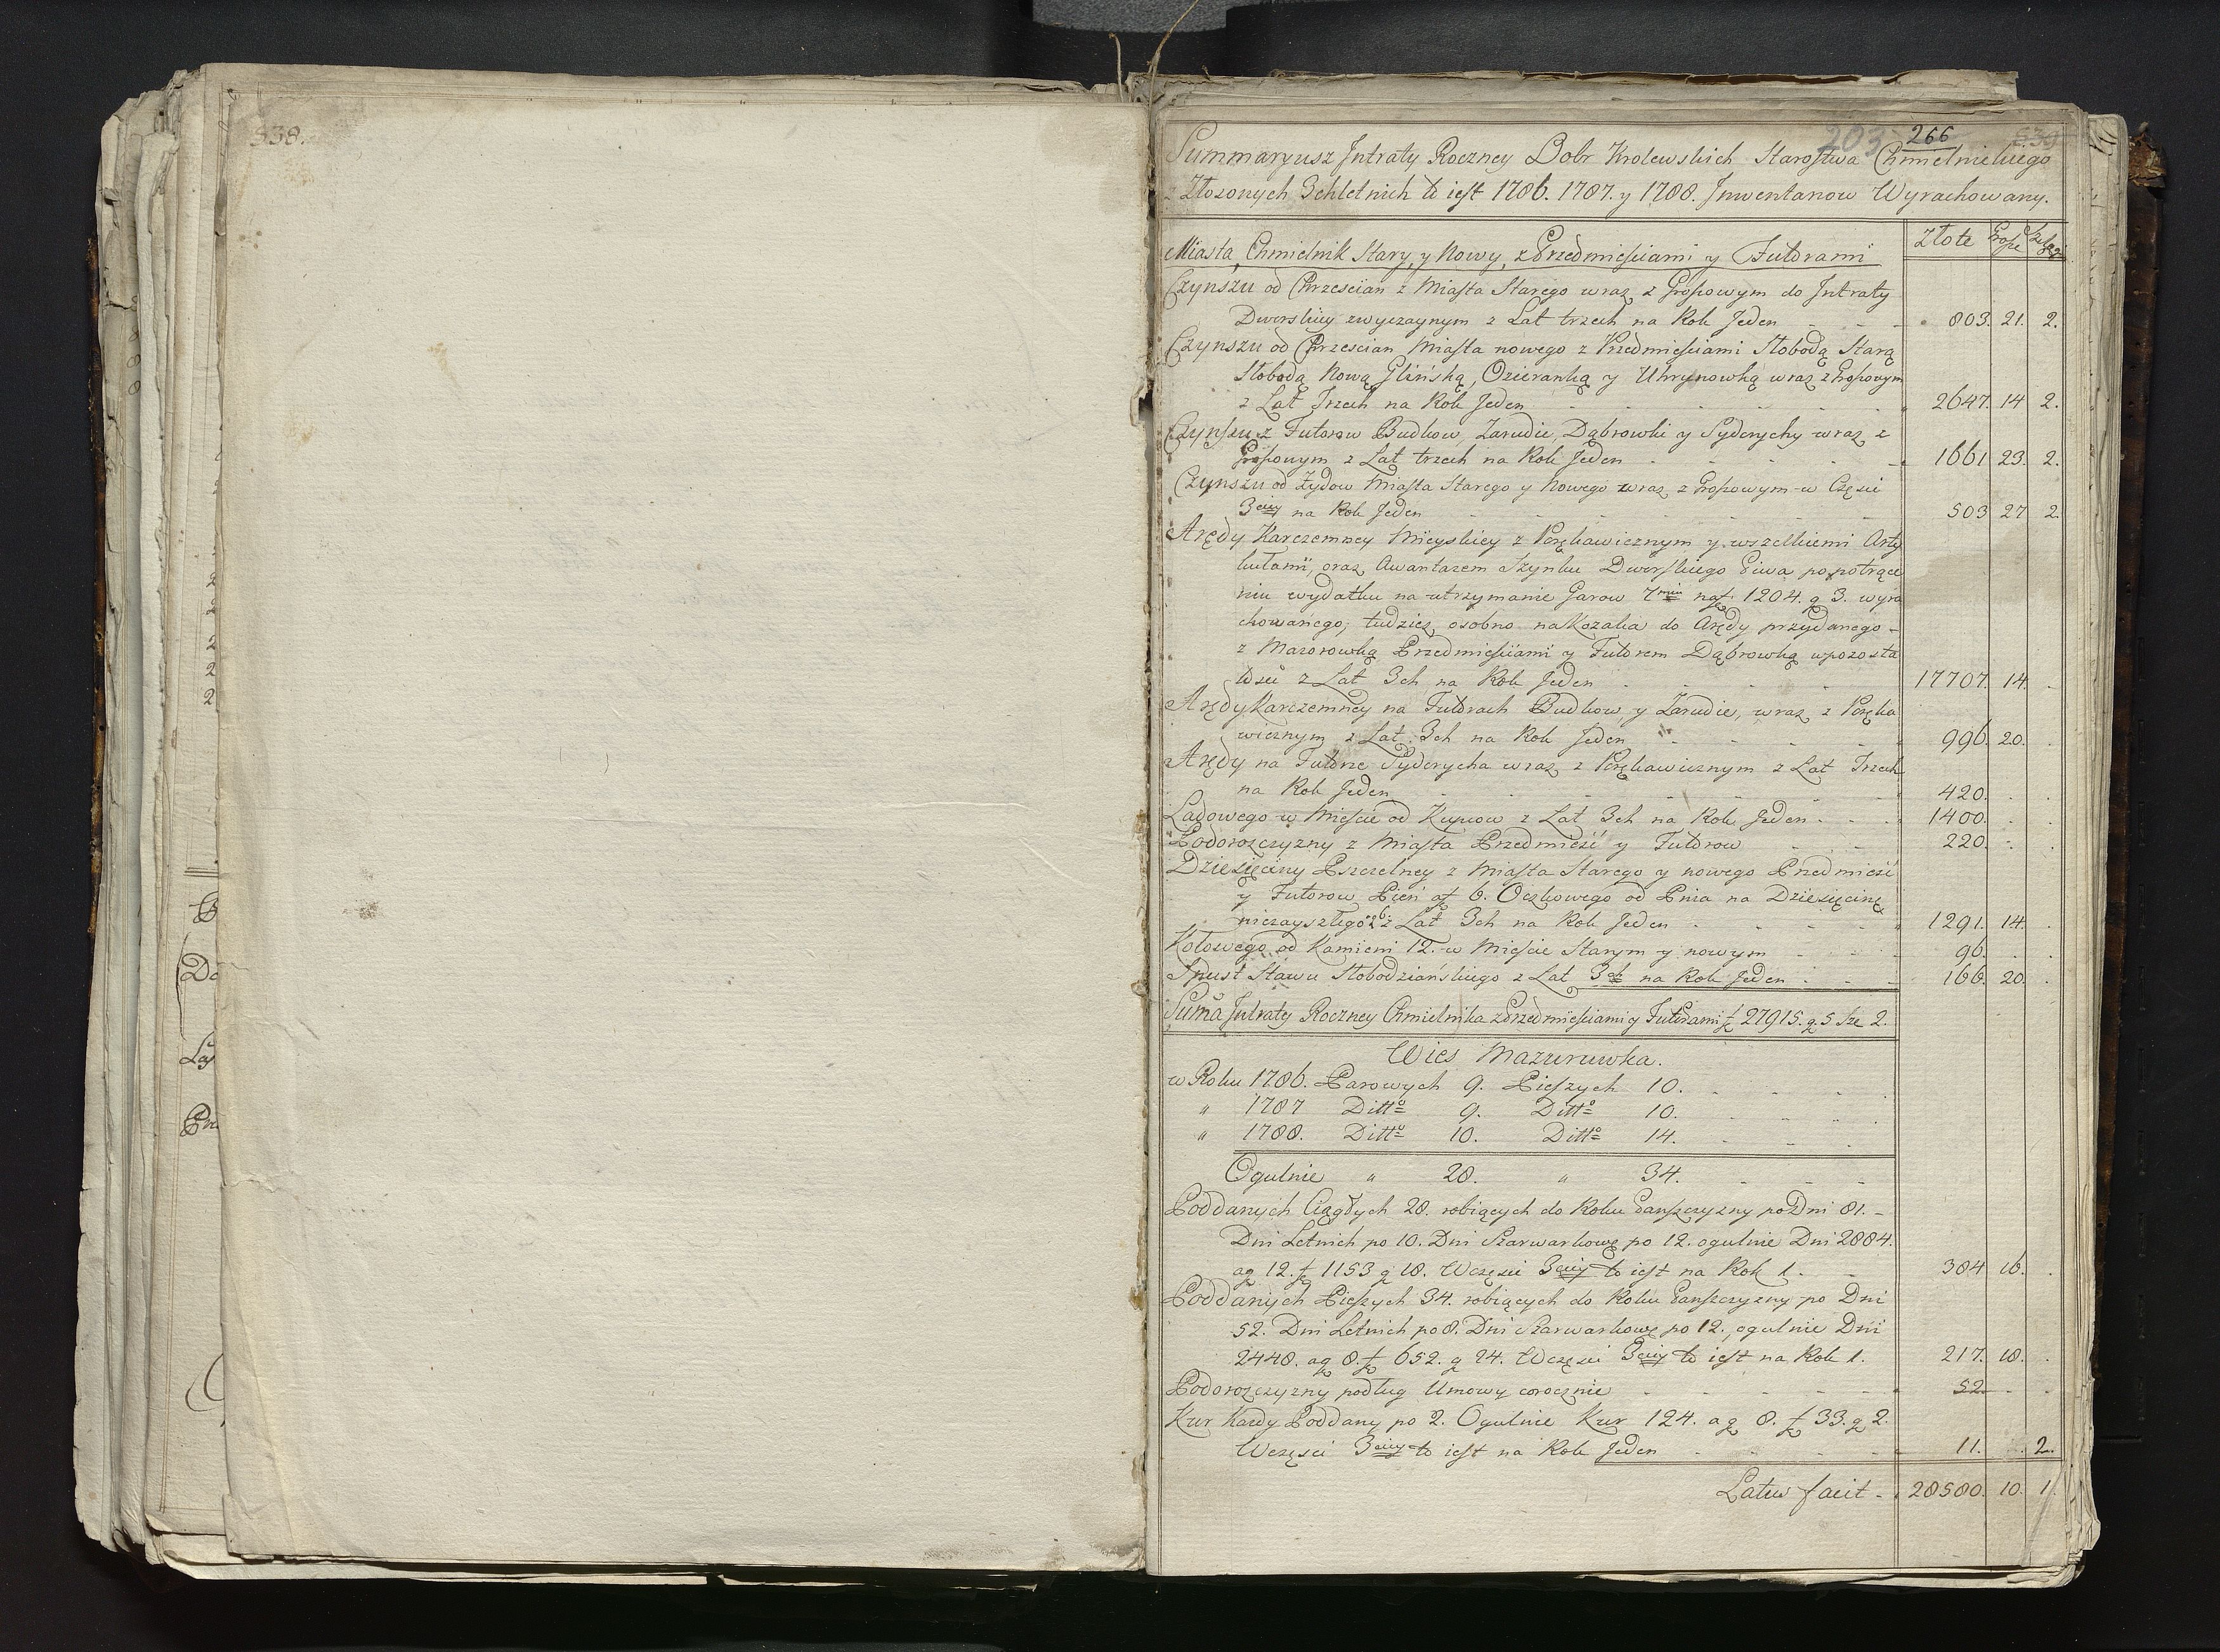 538.
203 266 539
Summaryusz Jntraty Roczney Dobr Krolewskich Starostwa Chmielnickiego
z Złozonych 3chletnich to iest 1786. 1787. y 1788. Jnwentarzow Wyrachowany.
Miasta, Chmielnik Stary, y Nowy, z Przedmiesciami y Futorami
Złote Grosze Szelągi
Czynszu od Chrzescian z Miasta Starego wraz z Groszowym do Jntraty
Dworskiey zwyczaynym z Lat trzech na Rok Jeden 803. 21. 2.
Czynszu od Chrzescian Miasta nowego z Przedmiesciami Słobodą Starą
Słobodą Nową Glińską, Ozieranką y Uhrynowką wraz z Groszowym
z Lat Trzech na Rok Jeden 2647. 14 2.
Czynszu z Futorow Budkow, Zarudie, Dąbrowki y Syderychy wraz z
Groszowym z Lat trzech na Rok Jeden 1661 23. 2.
Czynszu od Zydow Miasta Starego y Nowego wraz z Groszowym w Częsci
3ciey na Rok Jeden 503 27 2.
Arędy Karczemney Mieyskiey z Poręhawicznym y wszelkiemi Arty
kułami, oraz Awantazem Szynku Dworskiego Piwa po potrące
niu wydatku na utrzymanie Garow 7miu na zł 1204. g 3. wyra
chowanego, tudziez osobno na Kozaka do Arędy przydanego -
z Mazorowką Przedmiesciami y Futorem Dąbrowką w pozosta
łosci z Lat 3ch na Rok Jeden 17707. 14.
Arędy Karczemney na Futorach Budkow, y Zarudie, wraz z Poręha
wicznym z Lat 3ch na Rok Jeden 996. 20.
Arędy na Futorze Syderycha wraz z Poręhawicznym z Lat Trzech
na Rok Jeden 420.
Ladowego w Miescie od Kupcow z Lat 3ch na Rok Jeden 1400.
Podorozczyzny z Miasta Przedmiesć y Futorow 220.
Dziesięciny Pszczelney z Miasta Starego y nowego Przedmiesć
y Futorow Pień a zł 6. Oczkowego od Pnia na Dziesięcinę
niezayszłego z Lat 3ch na Rok Jeden 1291. 14.
Kołowego od Kamieni 12. w Miescie Starym y nowym 96.
Spust Stawu Słobodziańskiego z Lat 3ch na Rok Jeden 166. 20.
Suma Jntraty Roczney Chmielnika z Przedmiesciami y Futorami zł 27915. g. 5 Sze 2.
Wies Mazuruwka.
w Roku 1786. Parowych 9. Pieszych 10.
" 1787 Ditto 9. Ditto 10.
" 1788. Ditto 10. Ditto 14.
Ogulnie " 28. " 34.
Poddanych Ciągłych 28. robiących do Roku Panszczyzny po Dni 81. -
Dni Letnich po 10. Dni Szarwarkowe po 12. ogulnie Dni 2884.
a g 12. zł 1153 g 18. W częsci 3ciey to iest na Rok 1. 384 16.
Poddanych Pieszych 34. robiących do Roku Panszczyzny po Dni
52. Dni Letnich po 8. Dni Szarwarkowe po 12. ogulnie Dni
2448. a g 8. zł 652. g 24. W częsci 3ciey to iest na Rok 1. 217. 18.
Podorozczyzny podług Umowy corocznie 52
Kur Kazdy Poddany po 2. Ogulnie Kur 124. a g 8. zł 33. g 2.
W częsci 3ciey to iest na Rok Jeden 11. 2.
Latus facit - 28580. 10. 1